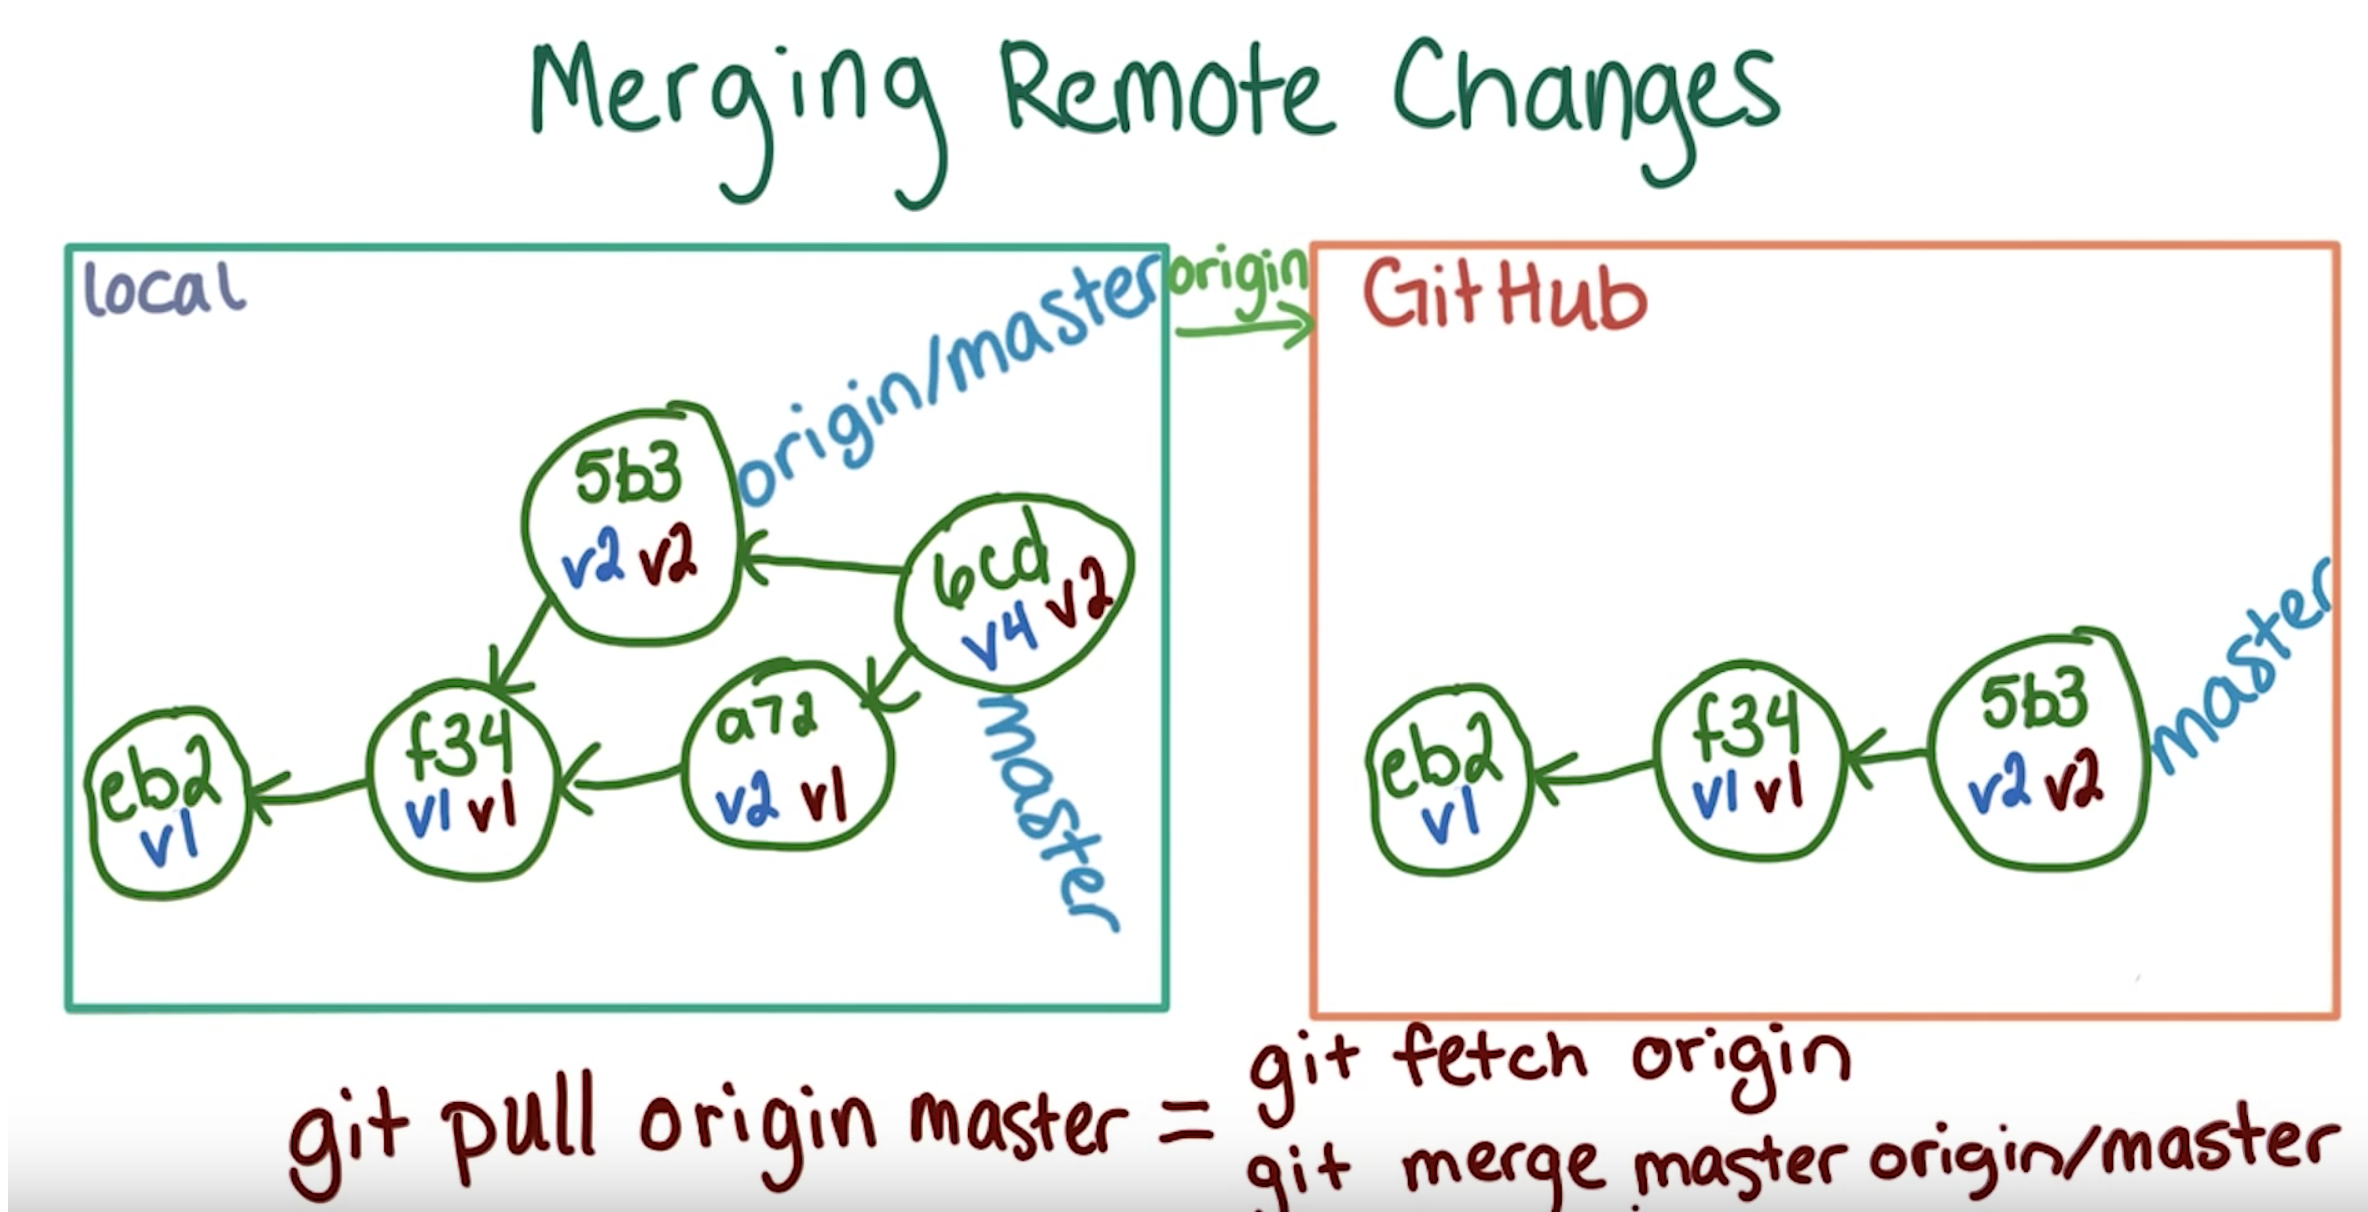 Merging Remote Changes
local
origin/master
origin
GitHub
5b3
v2 v2
6cd
v4 v2
master
a72
v2 v1
f34
v1 v1
eb2
v1
eb2
v1
f34
v1 v1
5b3
v2 v2
master
git pull origin master =
git fetch origin
git merge master origin/master